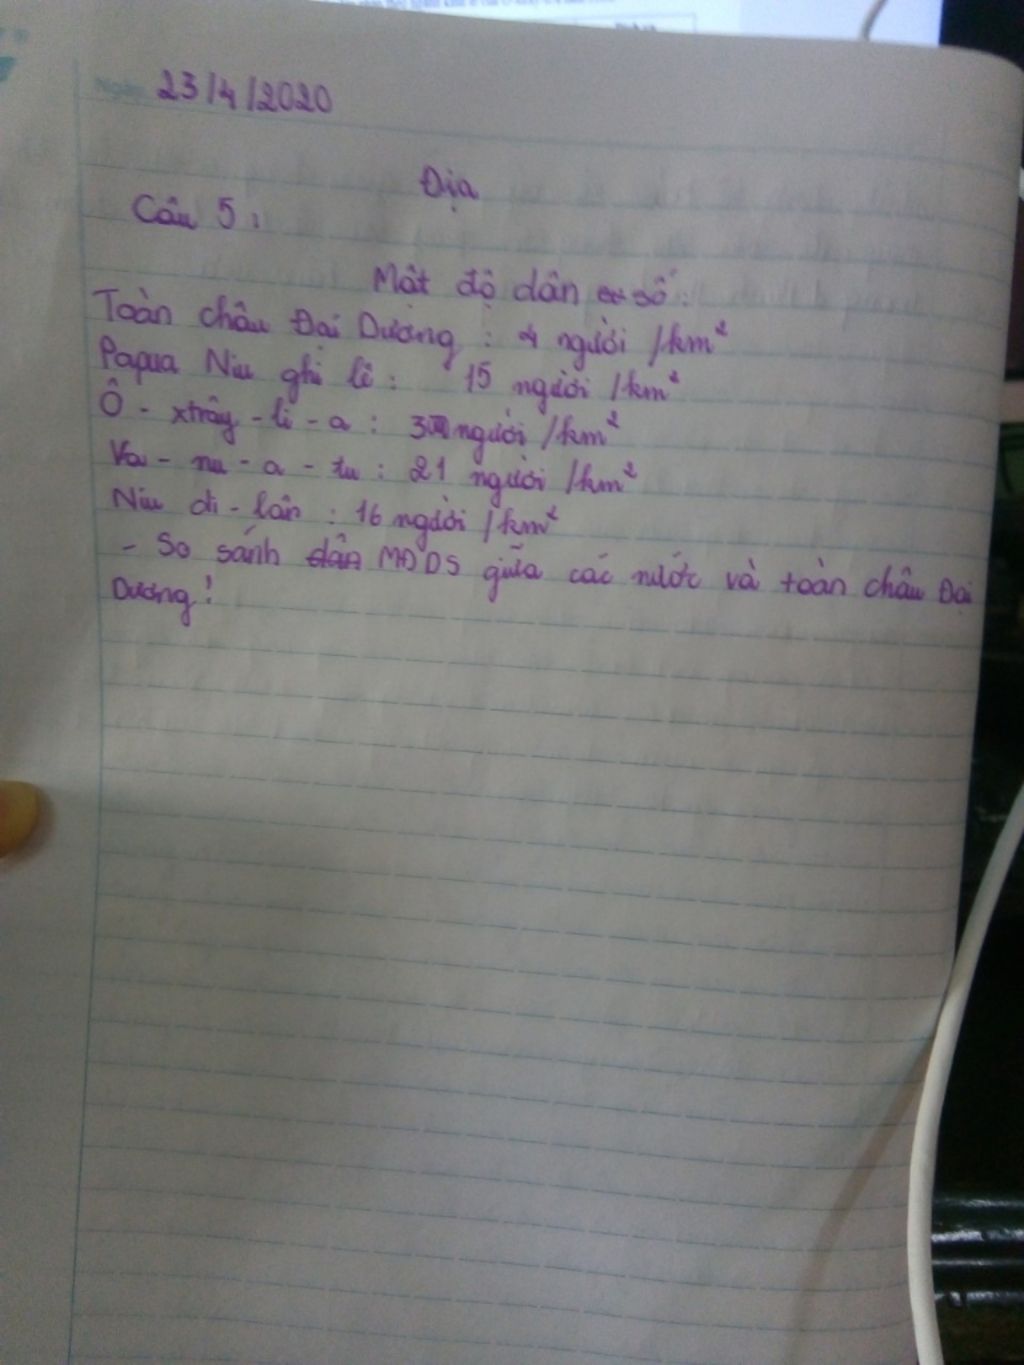 23/4/2020
Địa
Câu 5:
Mật độ dân số:
Toàn châu Đại Dương : 4 người /km²
Papua Niu ghi lê : 15 người /km²
Ô - xtrây - li - a : 3 người /km²
Va - nu - a - tu : 21 người /km²
Niu di - lân : 16 người /km²
- So sánh dân MĐDS giữa các nước và toàn châu Đại
Dương!